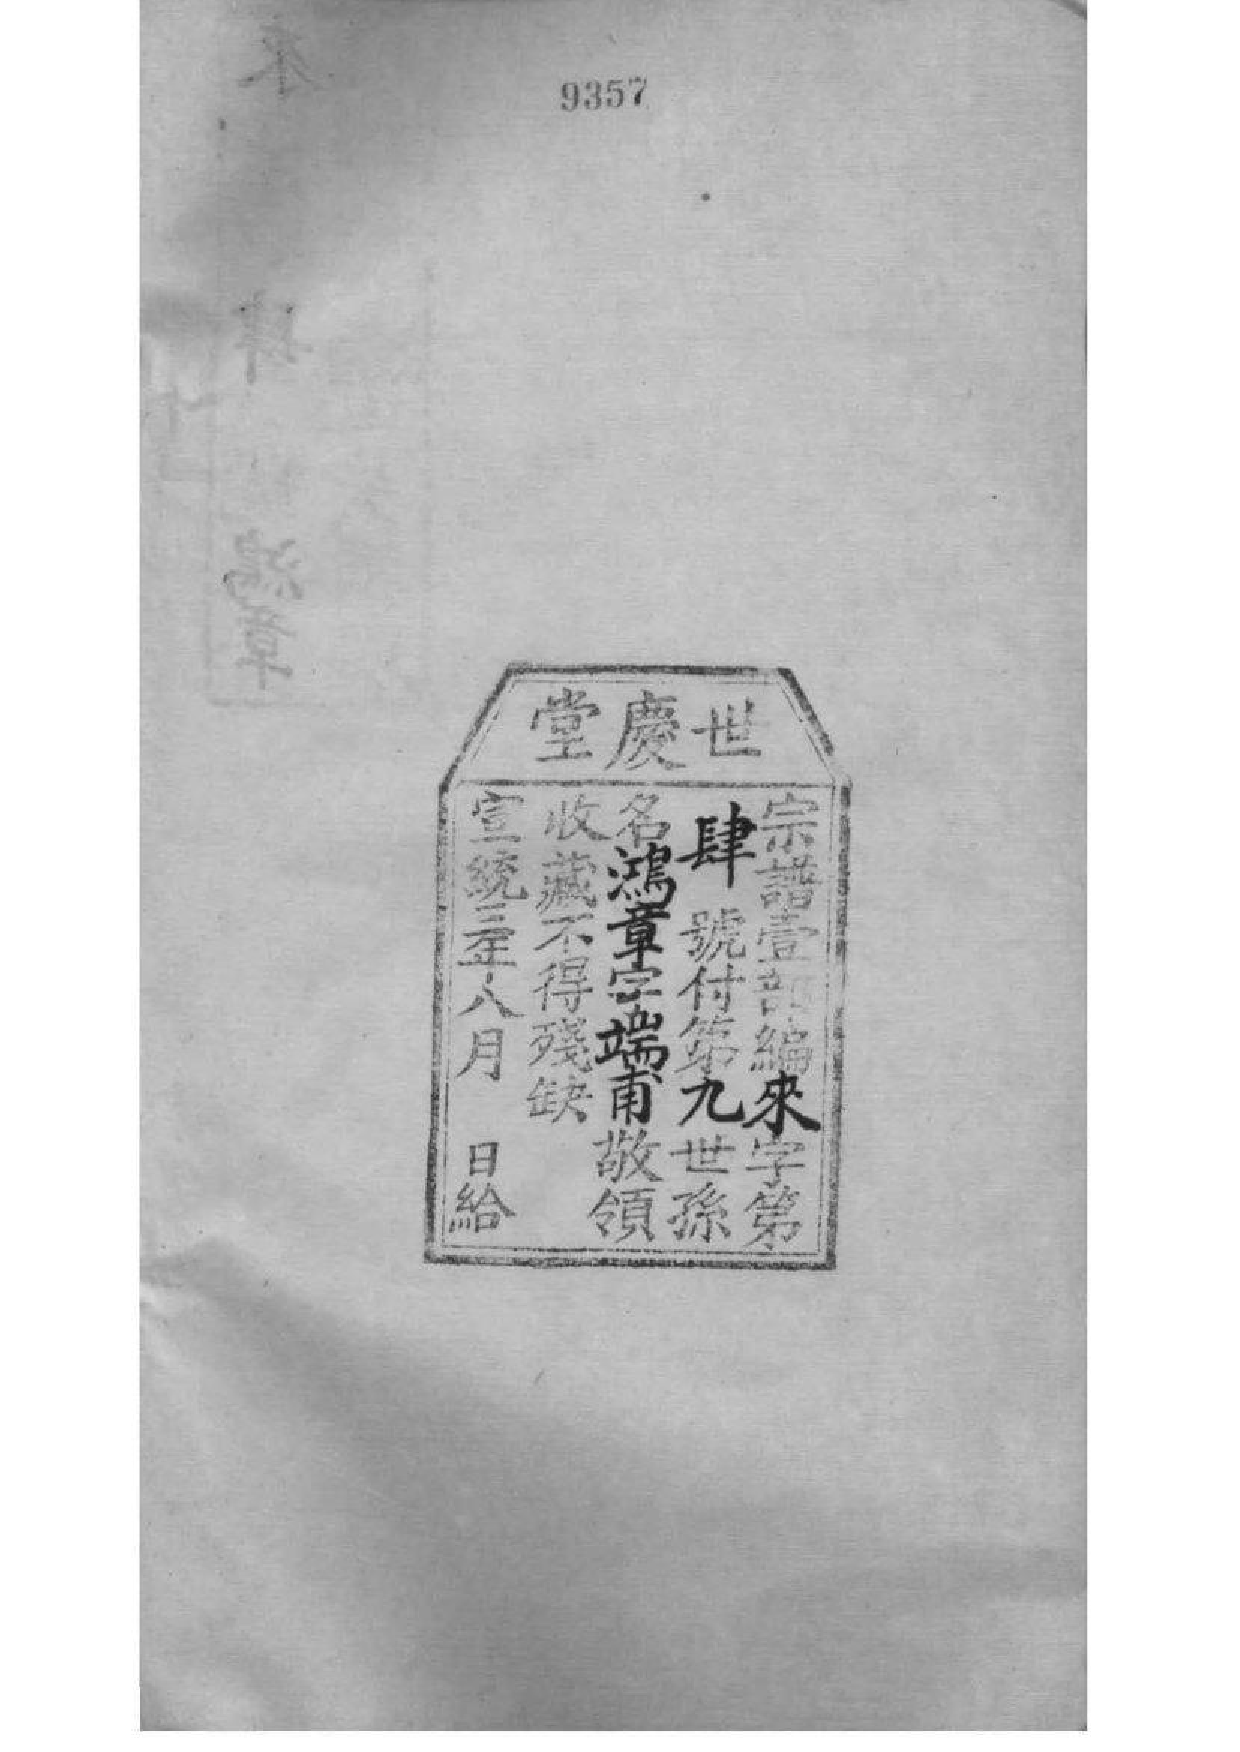 9357
世慶堂
宗譜壹部編來字第
肆號付第九世孫
名鴻章字端甫敬領
收藏不得殘缺
宣統三年八月 日給